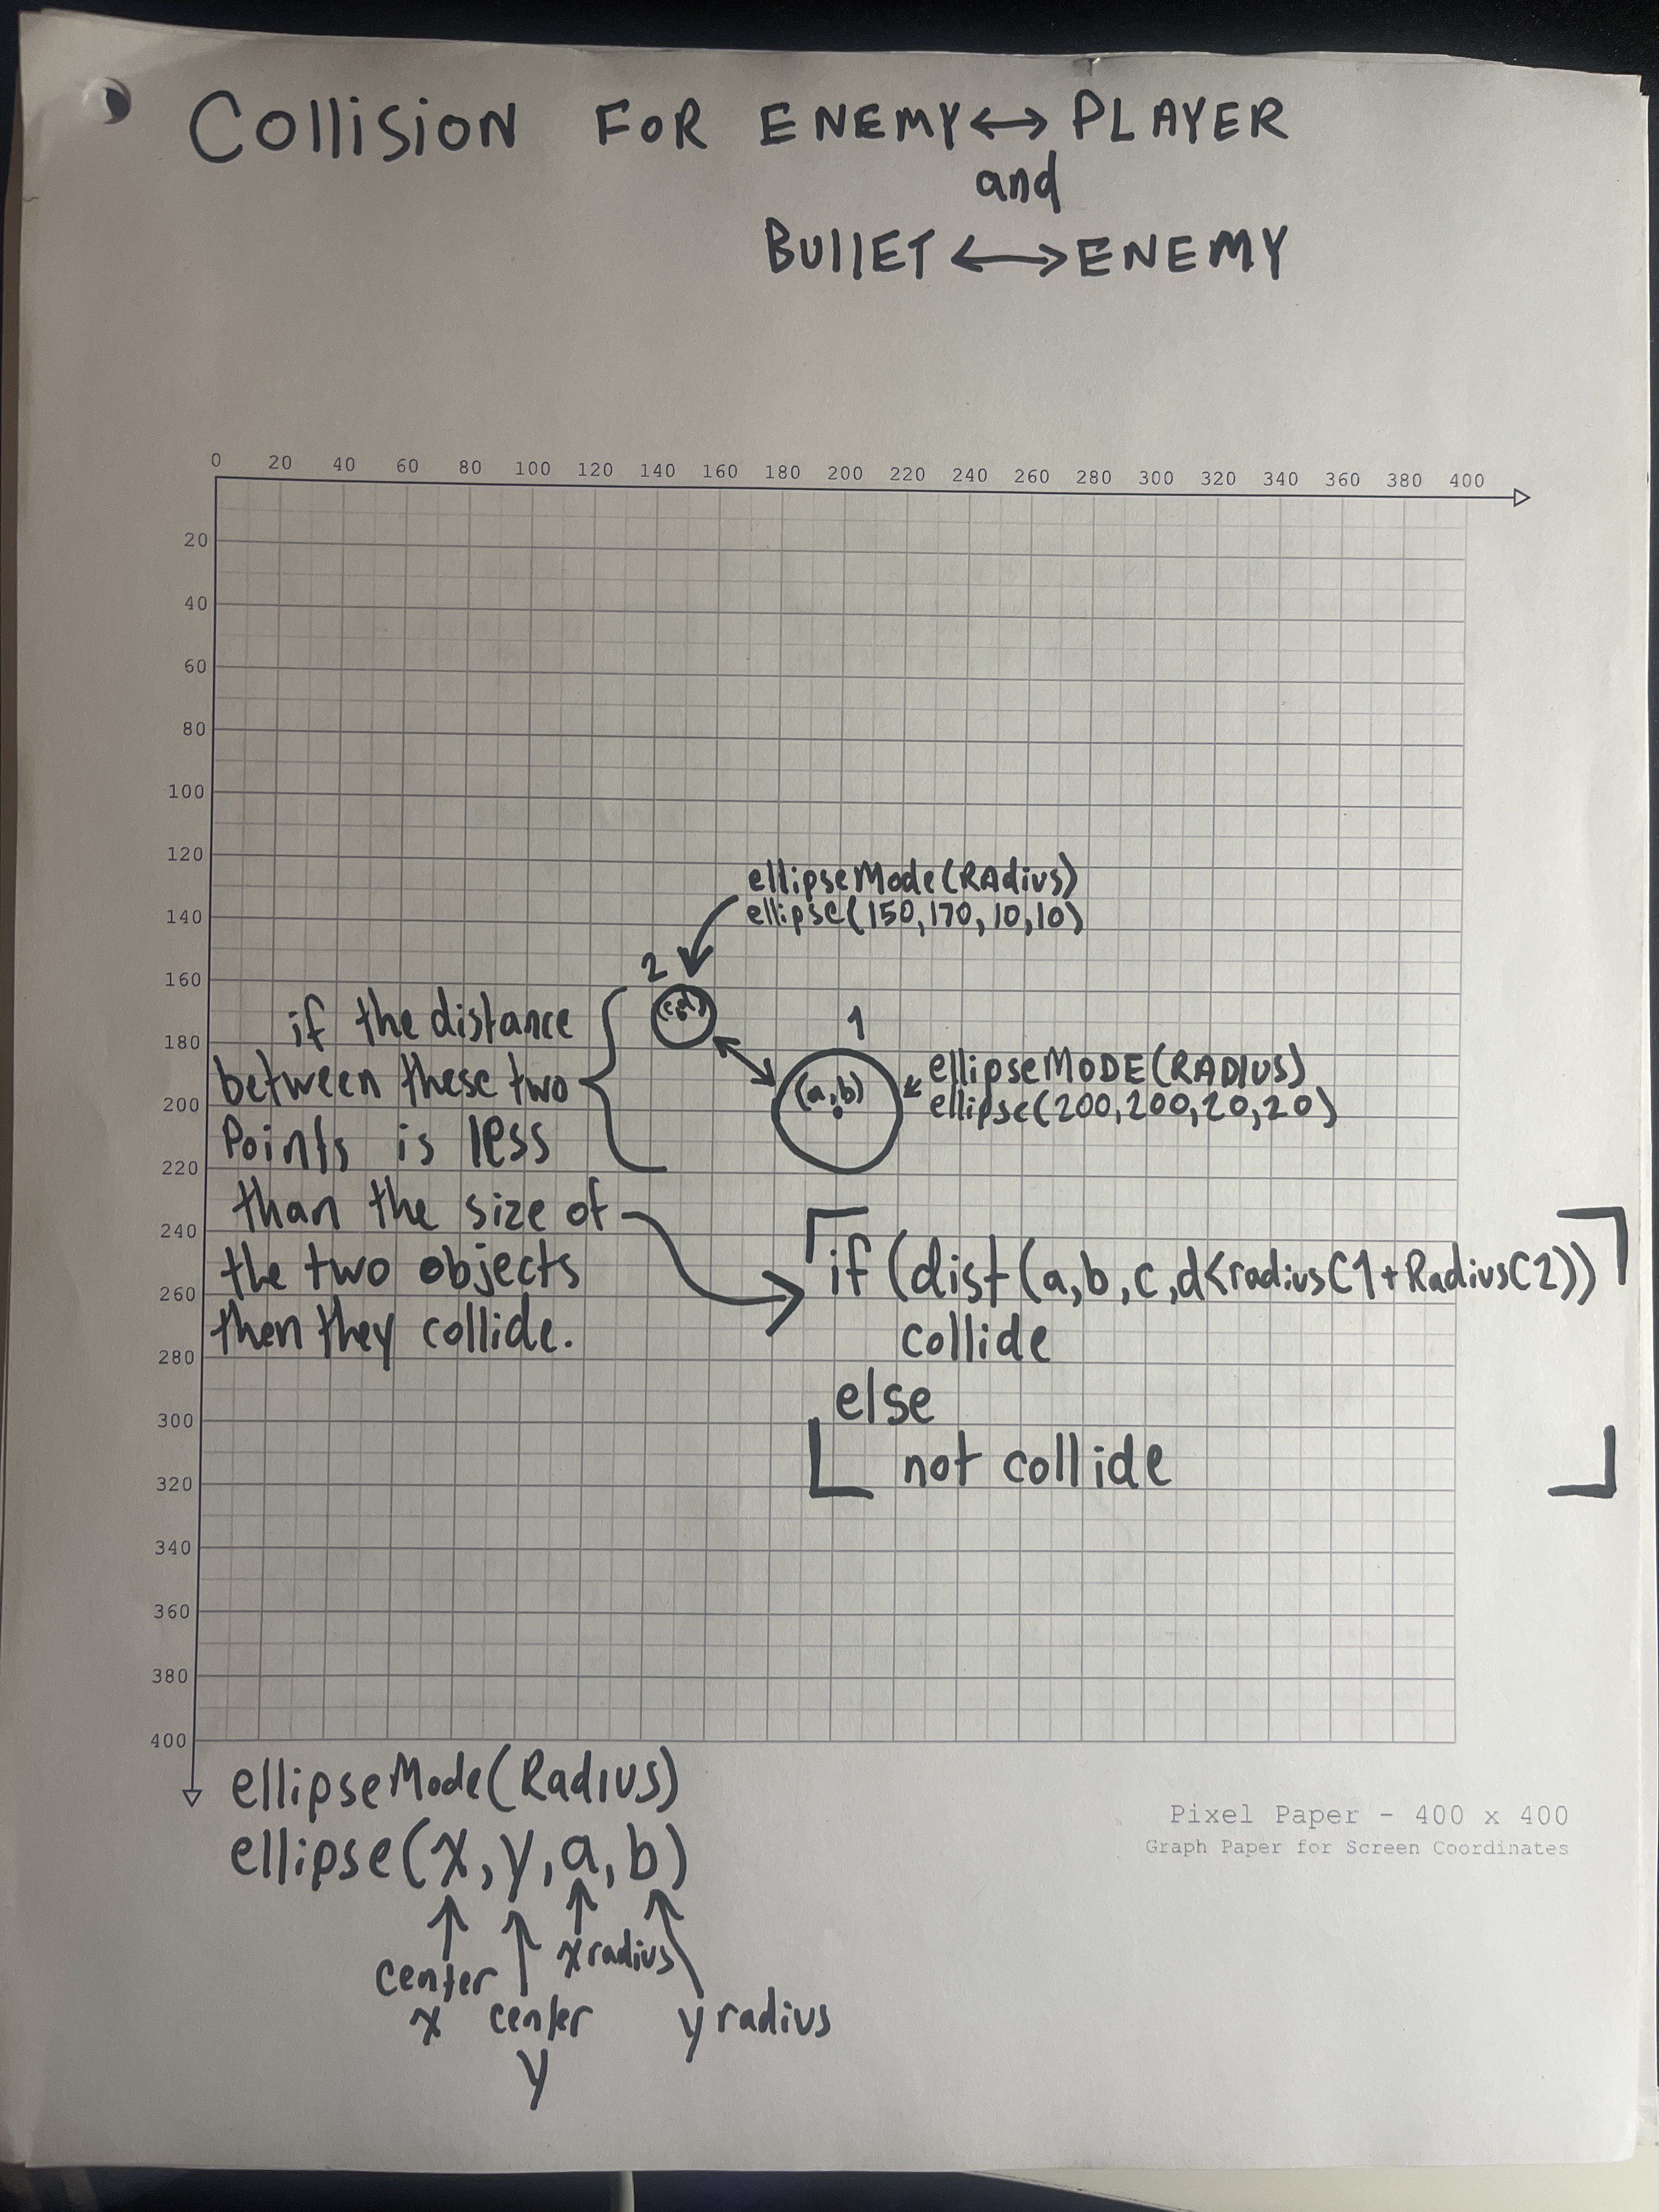 Collision FOR ENEMY ↔ PLAYER
and
BullET ↔ ENEMY
0 20 40 60 80 100 120 140 160 180 200 220 240 260 280 300 320 340 360 380 400
20
40
60
80
100
120
140
160
180
200
220
240
260
280
300
320
340
360
380
400
ellipseMode(RAdius)
ellipse(150,170,10,10)
2
(c,d)
1
(a,b)
ellipseMODE(RADIUS)
ellipse(200,200,20,20)
if the distance
between these two
Points is less
than the size of
the two objects
then they collide.
if (dist(a,b,c,d<radiusC1+RadiusC2))
collide
else
not collide
ellipseMode(Radius)
ellipse(x,y,a,b)
center
x
center
y
x radius
y radius
Pixel Paper - 400 x 400
Graph Paper for Screen Coordinates